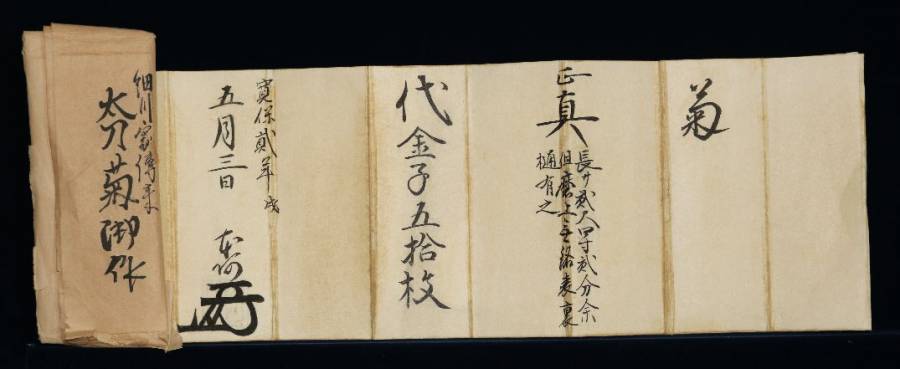 菊
正真
長サ貳尺四寸貳分余
但磨上無銘表裏
樋有之
代金子五拾枚
寛保貳年 戌
五月三日 本阿
細川家傳来
太刀菊御作